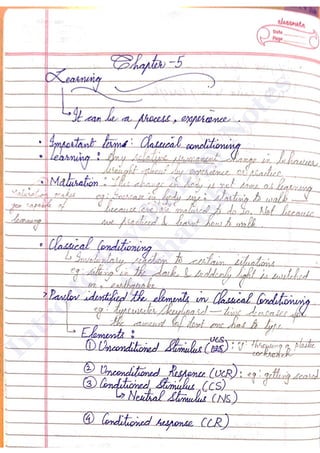 classmate
Date
Page
Chapter - 5
Learning
It can be a process, experience.
• Important terms: Classical conditioning
• Learning : Any relative permanent change in behaviour
brought about by experience or practice
• Maturation : This change in body is not same as learning
Maturation makes eg: Increase in body size: starting to walk
you capable of because we are matured to do so. Not because
learning we practiced & learnt how to walk
• Classical Conditioning
↳ Involuntary reaction to certain situations
eg: sitting in the dark & suddenly light is switched
on, earthquake
> Pavlov identified the elements in Classical Conditioning
eg: typewriter/keyboard – time decreases for
the amount of text one has to type
↳ Elements :
UCS
① Unconditioned Stimulus (UCS): Throwing a plastic
cockroach
② Unconditioned Response (UCR): eg: getting scared
③ Conditioned Stimulus (CS)
↳ Neutral Stimulus (NS)
④ Conditioned response (CR)